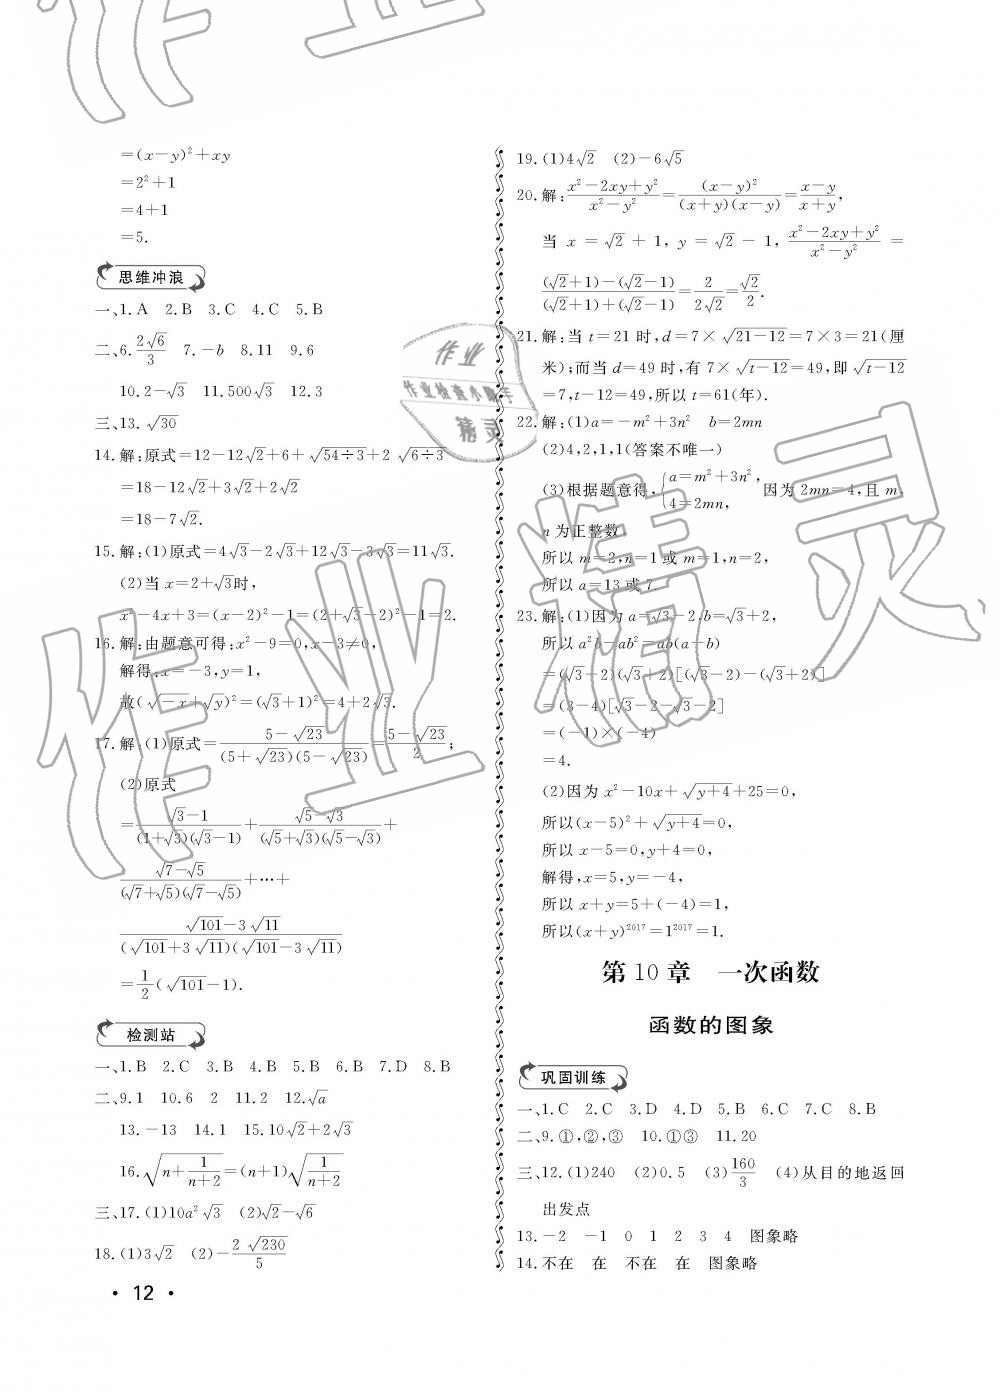 =(x-y)²+xy
=2²+1
=4+1
=5.
思维冲浪
一、1.A 2.B 3.C 4.C 5.B
二、6.2√6/3 7.-b 8.11 9.6
10.2-√3 11.500√3 12.3
三、13.√30
14.解:原式=12-12√2+6+√(54÷3)+2√(6÷3)
=18-12√2+3√2+2√2
=18-7√2.
15.解:(1)原式=4√3-2√3+12√3-3√3=11√3.
(2)当x=2+√3时,
x²-4x+3=(x-2)²-1=(2+√3-2)²-1=2.
16.解:由题意可得:x²-9=0,x-3≠0,
解得:x=-3,y=1,
故(√(-x)+√y)²=(√3+1)²=4+2√3.
17.解:(1)原式=(5-√23)/((5+√23)(5-√23))=(5-√23)/2;
(2)原式
=(√3-1)/((1+√3)(√3-1))+(√5-√3)/((√5+√3)(√5-√3))+
(√7-√5)/((√7+√5)(√7-√5))+…+
(√101-3√11)/((√101+3√11)(√101-3√11))
=1/2(√101-1).
检测站
一、1.B 2.C 3.B 4.B 5.B 6.B 7.D 8.B
二、9.1 10.6 2 11.2 12.√a
13.-13 14.1 15.10√2+2√3
16.√(n+1/(n+2))=(n+1)√(1/(n+2))
三、17.(1)10a²√3 (2)√2-√6
18.(1)3√2 (2)-2√230/5
· 12 ·
19.(1)4√2 (2)-6√5
20.解:(x²-2xy+y²)/(x²-y²)=(x-y)²/((x+y)(x-y))=(x-y)/(x+y),
当x=√2+1,y=√2-1,(x²-2xy+y²)/(x²-y²)=
((√2+1)-(√2-1))/((√2+1)+(√2-1))=2/(2√2)=√2/2.
21.解:当t=21时,d=7×√(21-12)=7×3=21(厘
米);而当d=49时,有7×√(t-12)=49,即√(t-12)
=7,t-12=49,所以t=61(年).
22.解:(1)a=-m²+3n² b=2mn
(2)4,2,1,1(答案不唯一)
(3)根据题意得,{a=m²+3n², 4=2mn, 因为2mn=4,且m,
n为正整数,
所以m=2,n=1或m=1,n=2,
所以a=13或7.
23.解:(1)因为a=√3-2,b=√3+2,
所以a²b-ab²=ab(a-b)
=(√3-2)(√3+2)[(√3-2)-(√3+2)]
=(3-4)[√3-2-√3-2]
=(-1)×(-4)
=4.
(2)因为x²-10x+√(y+4)+25=0,
所以(x-5)²+√(y+4)=0,
所以x-5=0,y+4=0,
解得,x=5,y=-4,
所以x+y=5+(-4)=1,
所以(x+y)²⁰¹⁷=1²⁰¹⁷=1.
第10章 一次函数
函数的图象
巩固训练
一、1.C 2.C 3.D 4.D 5.B 6.C 7.C 8.B
二、9.①,②,③ 10.①③ 11.20
三、12.(1)240 (2)0.5 (3)160/3 (4)从目的地返回
出发点
13.-2 -1 0 1 2 3 4 图象略
14.不在 在 不在 在 图象略
作业
作业检查小助手
精灵
作业精灵
作业